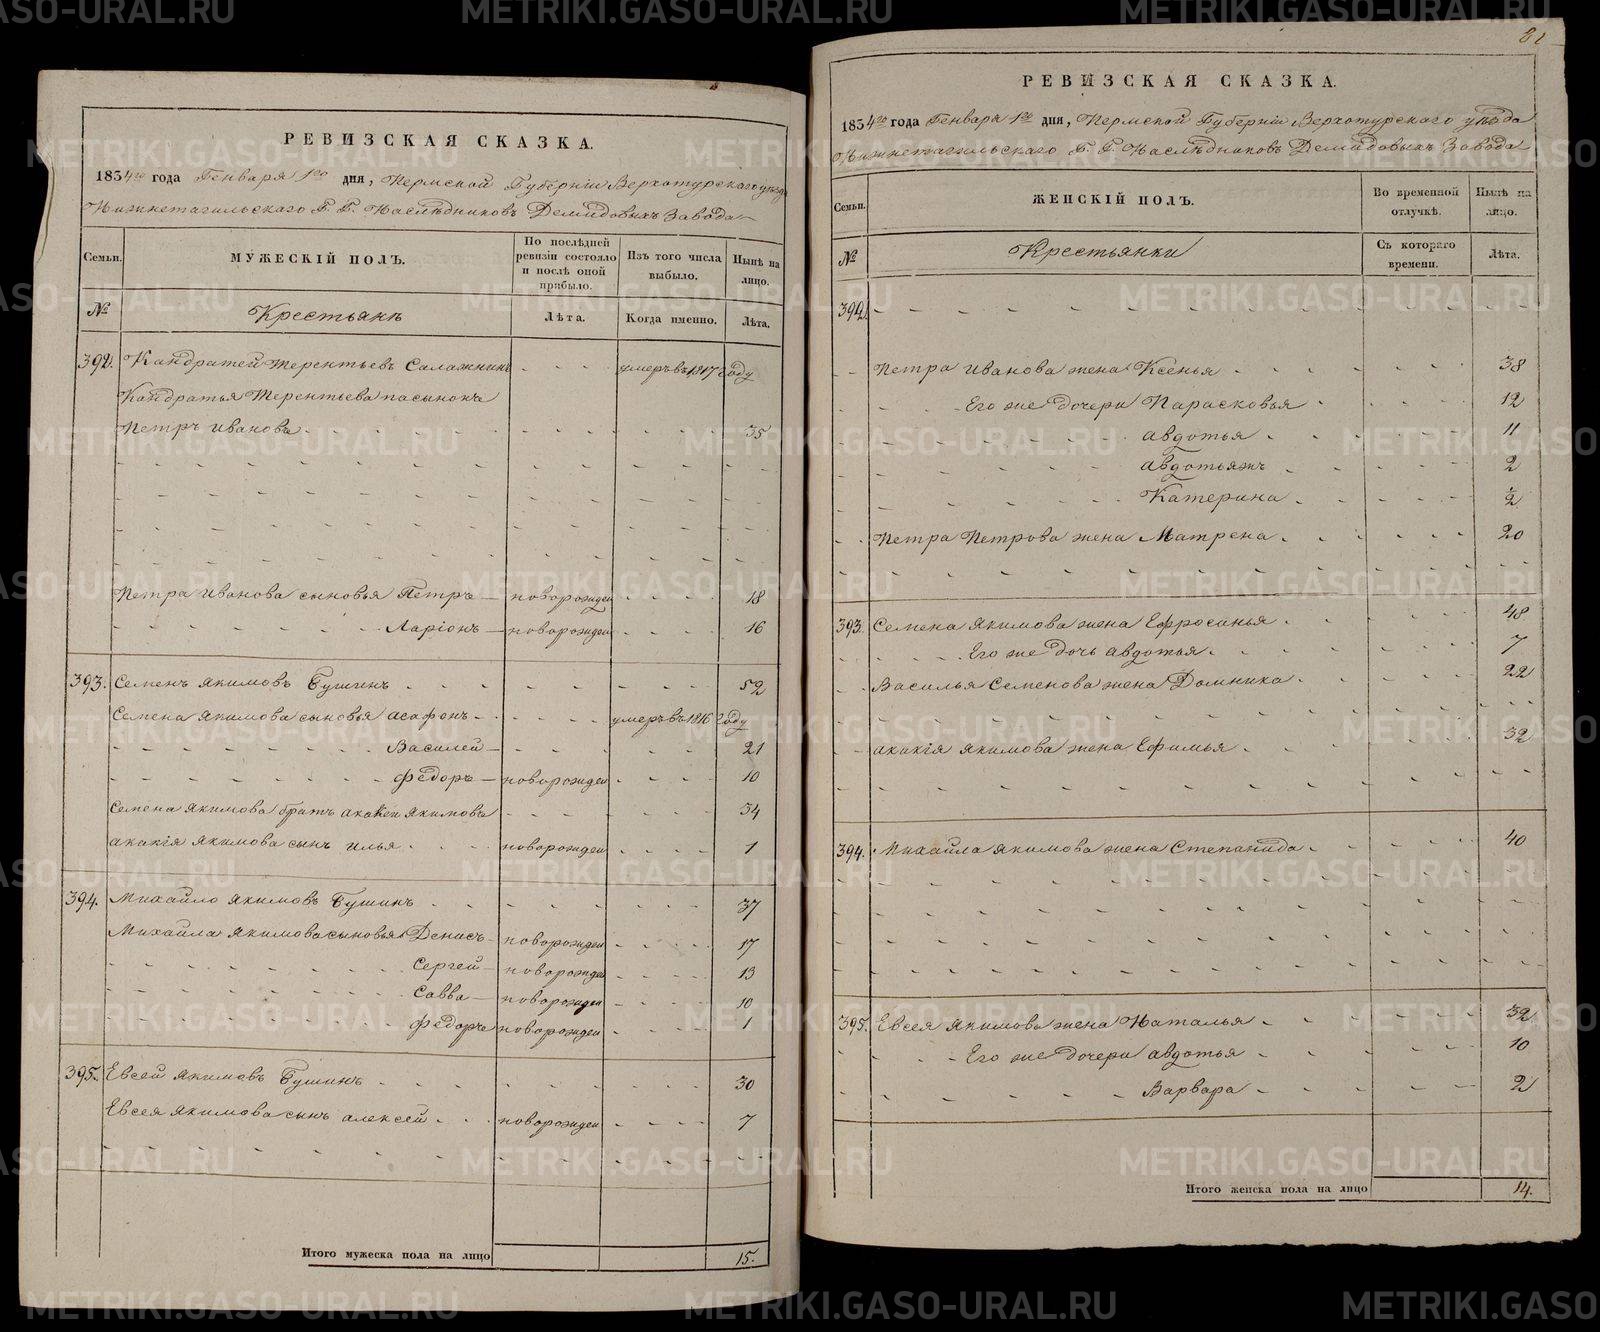 РЕВИЗСКАЯ СКАЗКА.
1834го года Генваря 1го дня, Пермской Губерніи Верхотурскаго уезда
Нижнетагильскаго Г. Г. Наслѣдниковъ Демидовыхъ Завода
Семьи. МУЖЕСКІЙ ПОЛЪ. По послѣдней ревизіи состояло и послѣ оной прибыло. Изъ того числа выбыло. Нынѣ на лицо.
№ Крестьянъ Лѣта. Когда именно. Лѣта.
392. Кандратей Терентьевъ умеръ въ 1817 году
Кандратья Терентьева пасынокъ
Петръ Ивановъ 35
Петра Иванова сыновья Петръ новорожден 18
Ларіонъ новорожден 16
393. Семенъ Якимовъ Бушинъ 52
Семена Якимова сыновья Асафонъ умеръ въ 1816 году
Василей 21
Федоръ новорожден 10
Семена Якимова братъ Акакей Якимовъ 34
Акакія Якимова сынъ Илья новорожден 1
394. Михайло Якимовъ Бушинъ 37
Михайла Якимова сыновья Денисъ новорожден 17
Сергей новорожден 13
Савва новорожден 10
Федоръ новорожден 1
395. Евсей Якимовъ Бушинъ 30
Евсея Якимова сынъ Алексей новорожден 7
Итого мужеска пола на лицо 15.
РЕВИЗСКАЯ СКАЗКА.
1834го года Генваря 1го дня, Пермской Губерніи Верхотурскаго уѣзда
Нижнетагильскаго Г. Г. Наслѣдниковъ Демидовыхъ Завода
Семьи. ЖЕНСКІЙ ПОЛЪ. Во временной отлучкѣ. Нынѣ на лицо.
№ Крестьянки Съ котораго времени. Лѣта.
392.
Петра Иванова жена Ксенья 38
Его же дочери Парасковья 12
Авдотья 11
Авдотьяжъ 2
Катерина ½
Петра Петрова жена Матрена 20
393. Семена Якимова жена Ефросинья 48
Его же дочь Авдотья 7
Василья Семенова жена Домника 22
Акакія Якимова жена Ефимья 32
394. Михайла Якимова жена Степанида 40
395. Евсея Якимова жена Наталья 32
Его же дочери Авдотья 10
Варвара 2
Итого женска пола на лицо 14.
METRIKI.GASO-URAL.RU